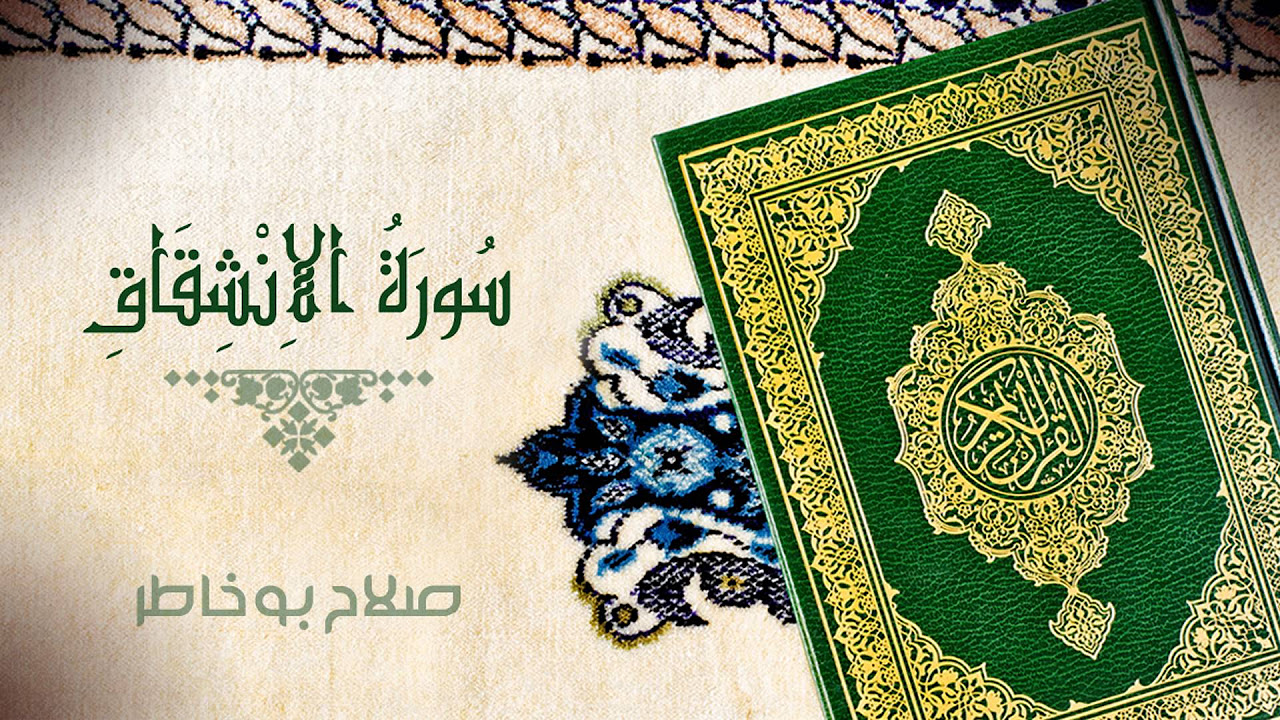 سُورَةُ الإِنْشِقَاقِ
صلاح بو خاطر
القرآن الكريم